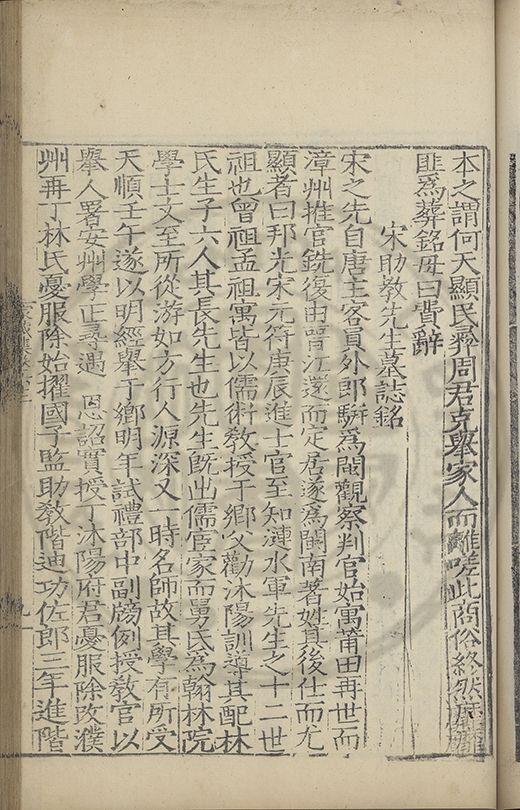 本之謂何天顯民彝周君克舉家人而離嗟此商俗終然靡
匪爲葬銘毋曰費辭
宋助教先生墓誌銘
宋之先自唐主客員外郎駢爲閩觀察判官始寓莆田再世而
漳州推官銑復由晉江遂而定居遂爲閩南著姓其後仕而尤
顯者曰邦光宋元符庚辰進士官至知漣水軍先生之十二世
祖也曾祖孟祖寓皆以儒術教授于鄉父勸沐陽訓導其配林
氏生子六人其長先生也先生旣出儒宦家而舅氏爲翰林院
學士文至所從游如方行人源深又一時名師故其學有所受
天順壬午遂以明經舉于鄉明年試禮部中副牓例授教官以
舉人署安州學正尋遇 恩詔實授丁沐陽府君憂服除改濮
州再丁林氏憂服除始擢國子監助教階迪功佐郎三年進階